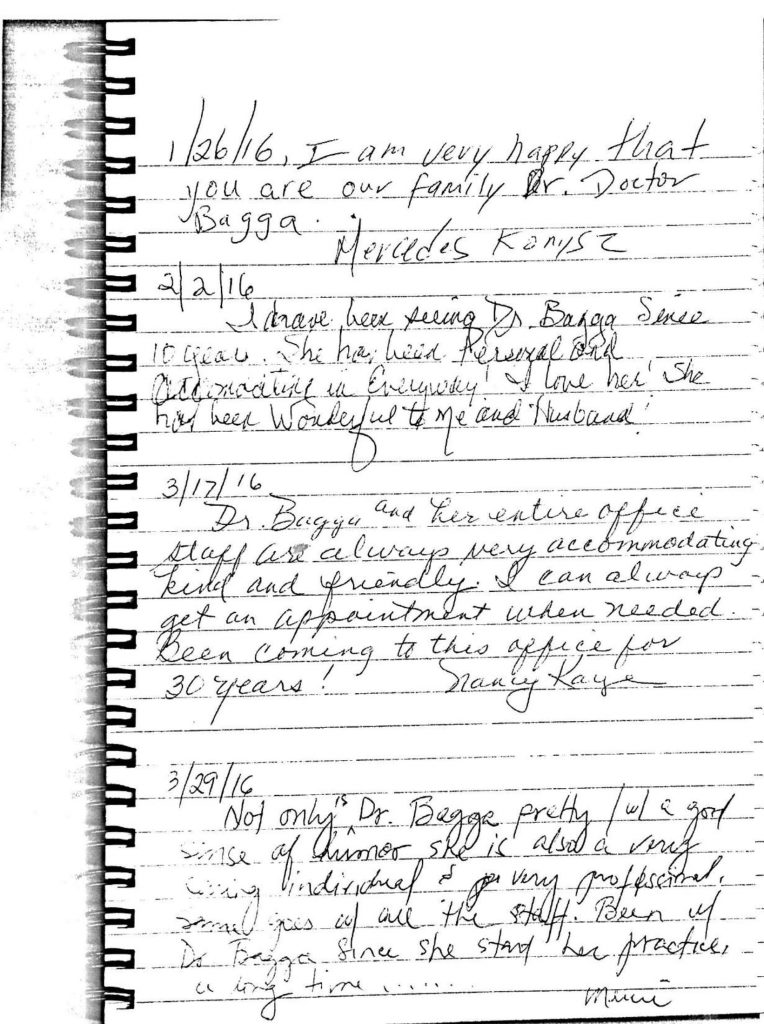 1/26/16, I am very happy that
you are our family Dr. Doctor
Bagga.
Mercedes Konysz
2/2/16
I have been seeing Dr. Bagga Since
10 year. She has been Personal and
accomodating in Everyway! I love her! She
has been Wonderful to Me and Husband!
3/17/16
Dr. Bagga and her entire office
staff are always very accommodating
kind and friendly. I can always
get an appointment when needed.
Been coming to this office for
30 years! Nancy Kaye
3/29/16
Not only is Dr. Bagga pretty / w/ a good
sense of humor she is also a very
caring individual & very professional.
same goes w/ all the staff. Been w/
Dr Bagga Since she start her practice,
a long time ......